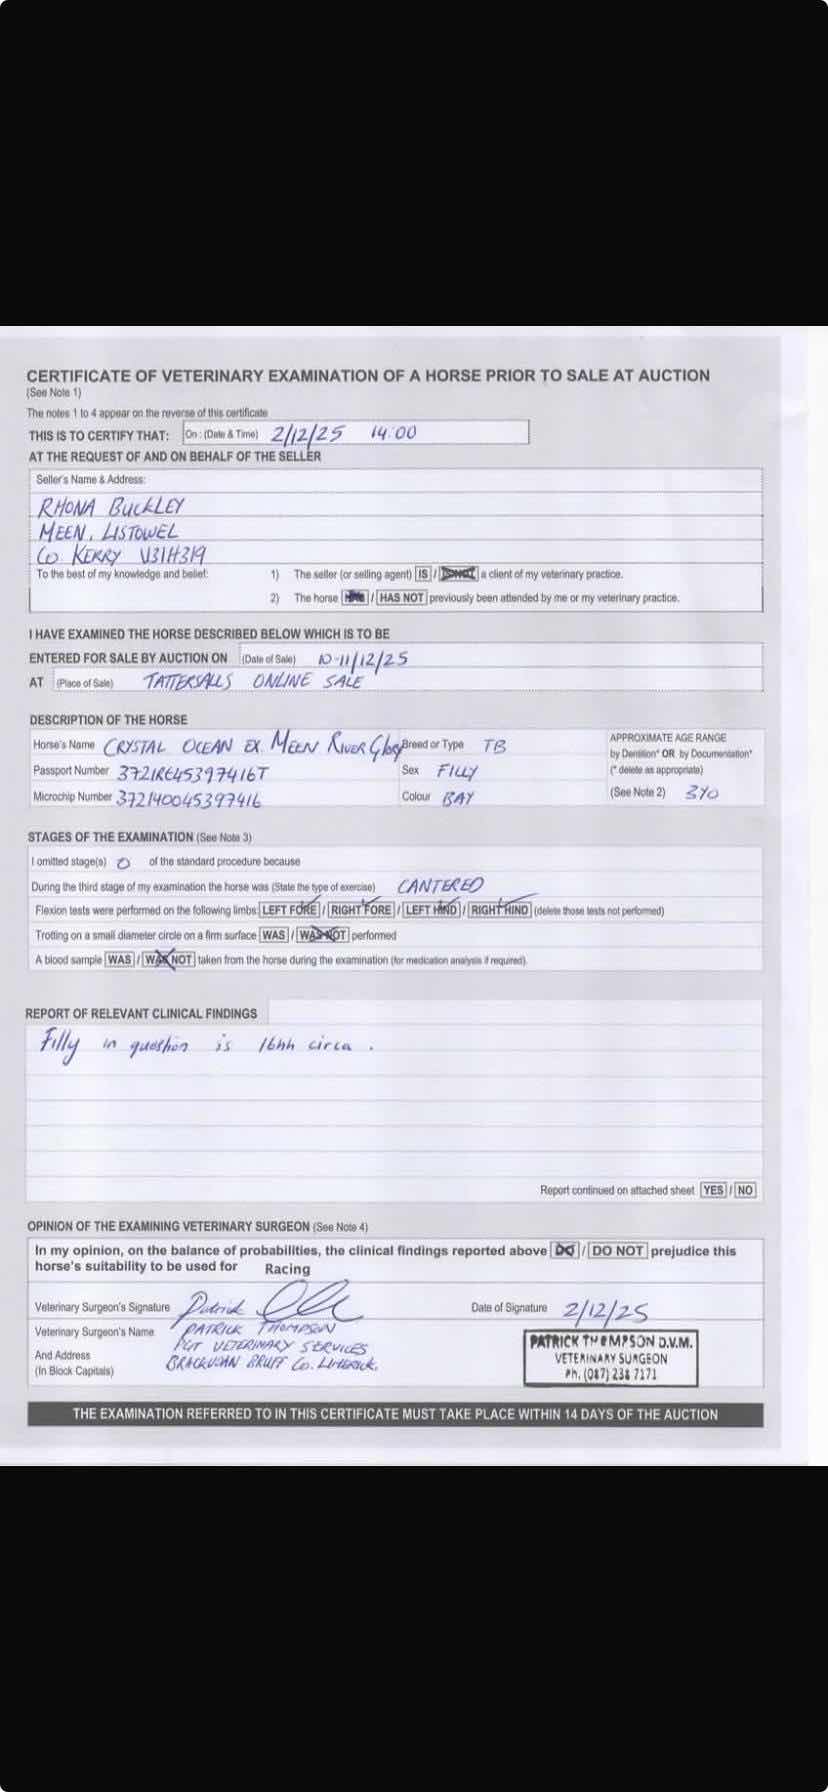 CERTIFICATE OF VETERINARY EXAMINATION OF A HORSE PRIOR TO SALE AT AUCTION
(See Note 1)
The notes 1 to 4 appear on the reverse of this certificate
THIS IS TO CERTIFY THAT: On : (Date & Time) 2/12/25 14:00
AT THE REQUEST OF AND ON BEHALF OF THE SELLER
Seller's Name & Address:
RHONA BUCKLEY
MEEN, LISTOWEL
CO KERRY V31H319
To the best of my knowledge and belief: 1) The seller (or selling agent) IS / IS NOT a client of my veterinary practice.
2) The horse HAS / HAS NOT previously been attended by me or my veterinary practice.
I HAVE EXAMINED THE HORSE DESCRIBED BELOW WHICH IS TO BE
ENTERED FOR SALE BY AUCTION ON (Date of Sale) 10-11/12/25
AT (Place of Sale) TATTERSALLS ONLINE SALE
DESCRIPTION OF THE HORSE
Horse's Name CRYSTAL OCEAN EX MEEN RIVER Glory Breed or Type TB APPROXIMATE AGE RANGE
by Dentition* OR by Documentation*
Passport Number 372IRE45397416T Sex FILLY (* delete as appropriate)
Microchip Number 372140045397416 Colour BAY (See Note 2) 3YO
STAGES OF THE EXAMINATION (See Note 3)
I omitted stage(s) 0 of the standard procedure because
During the third stage of my examination the horse was (State the type of exercise) CANTERED
Flexion tests were performed on the following limbs: LEFT FORE / RIGHT FORE / LEFT HIND / RIGHT HIND (delete those tests not performed)
Trotting on a small diameter circle on a firm surface WAS / WAS NOT performed
A blood sample WAS / WAS NOT taken from the horse during the examination (for medication analysis if required).
REPORT OF RELEVANT CLINICAL FINDINGS
Filly in question is 16hh circa .
Report continued on attached sheet YES / NO
OPINION OF THE EXAMINING VETERINARY SURGEON (See Note 4)
In my opinion, on the balance of probabilities, the clinical findings reported above DO / DO NOT prejudice this
horse's suitability to be used for Racing
Veterinary Surgeon's Signature Patrick Date of Signature 2/12/25
Veterinary Surgeon's Name PATRICK THOMPSON
And Address PGT VETERINARY SERVICES
(In Block Capitals) BRUFF CO. LIMERICK.
PATRICK THOMPSON D.V.M.
VETERINARY SURGEON
Ph. (087) 238 7171
THE EXAMINATION REFERRED TO IN THIS CERTIFICATE MUST TAKE PLACE WITHIN 14 DAYS OF THE AUCTION